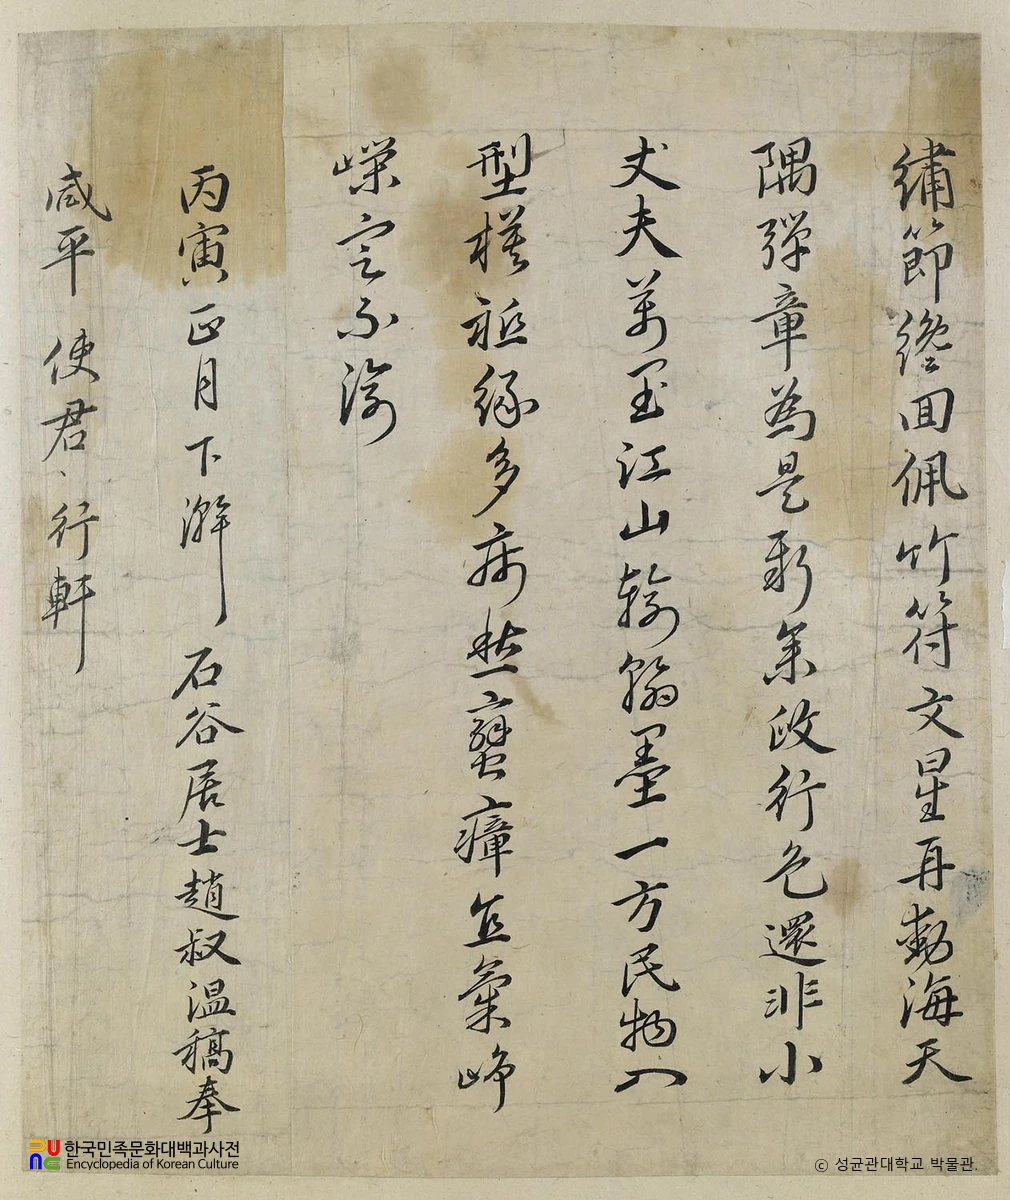 繡節纔回佩竹符文星再動海天
隅彈章為是政行色還非小
丈夫萬里江山輸翰墨一方民物入
型模祗緣多病愁蠻瘴直氣崢
嶸定不渝
丙寅正月下澣 石谷居士趙叔溫稿奉
咸平 使君行軒
한국민족문화대백과사전
Encyclopedia of Korean Culture
© 성균관대학교 박물관.